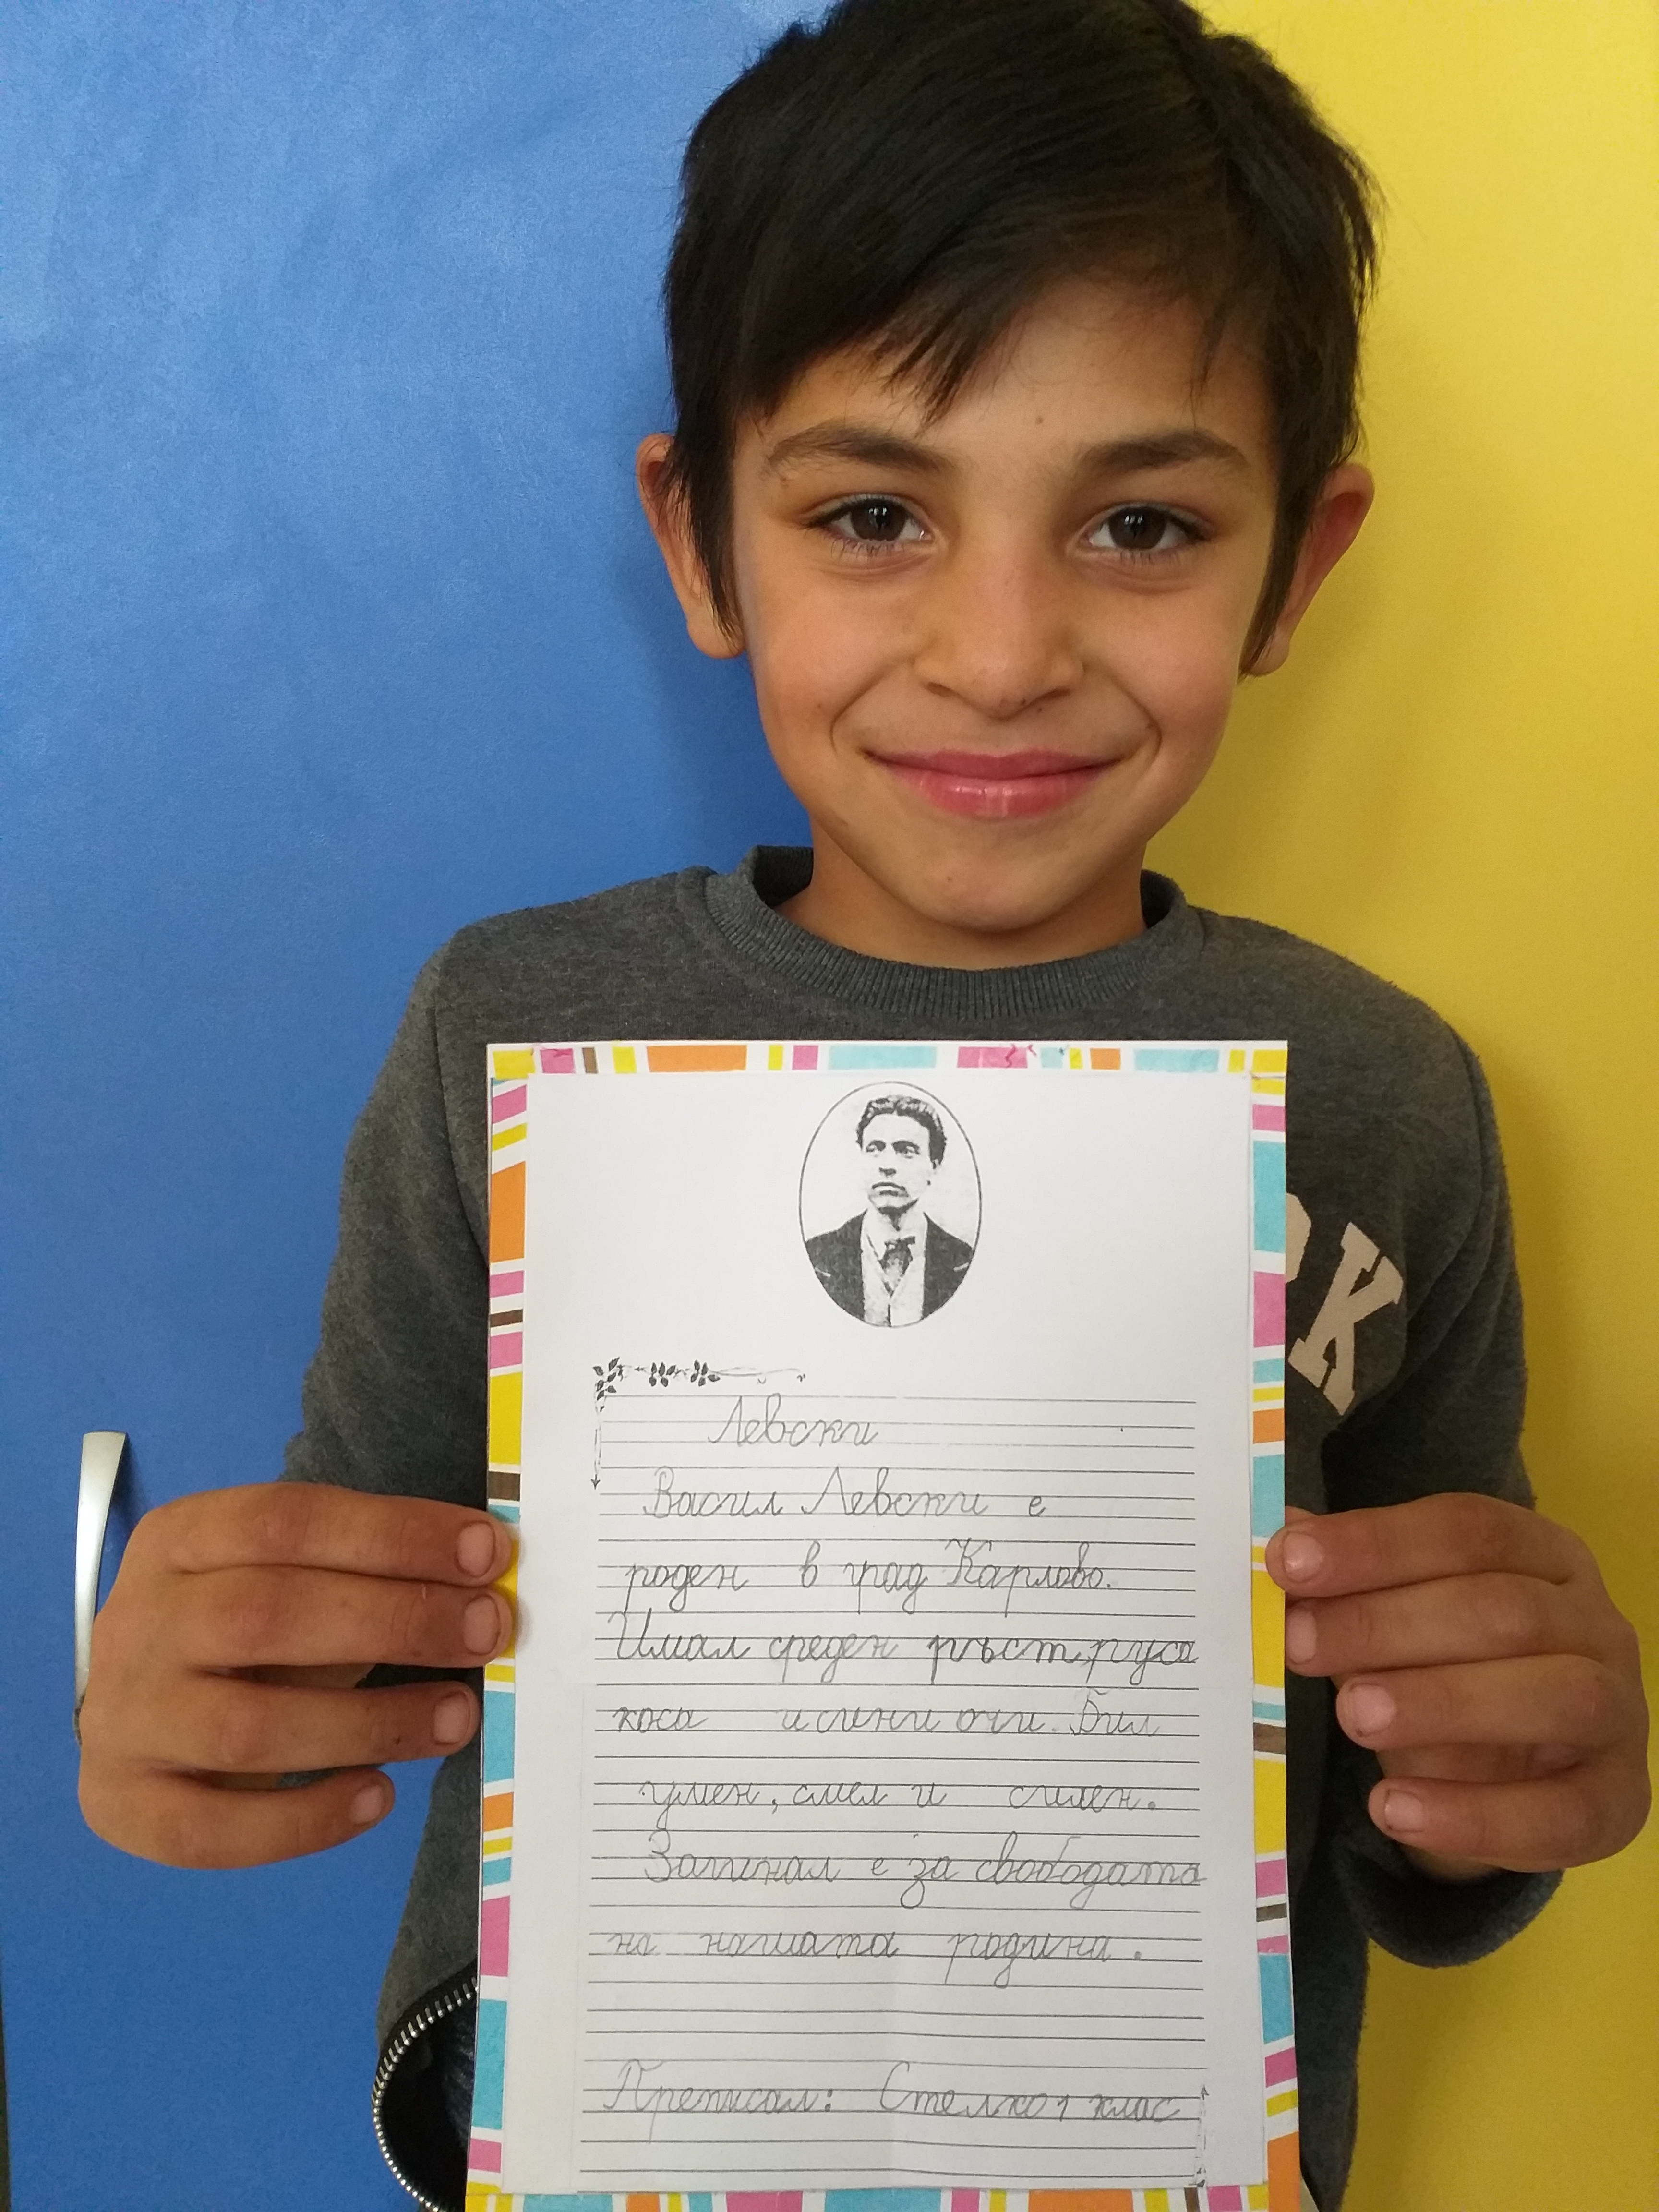 РК
Левски
Васил Левски е
роден в град Карлово.
Имал среден ръст, руса
коса и сини очи. Бил
умен, смел и силен.
Загинал е за свободата
на нашата родина.
Преписал: Стелко 1 клас